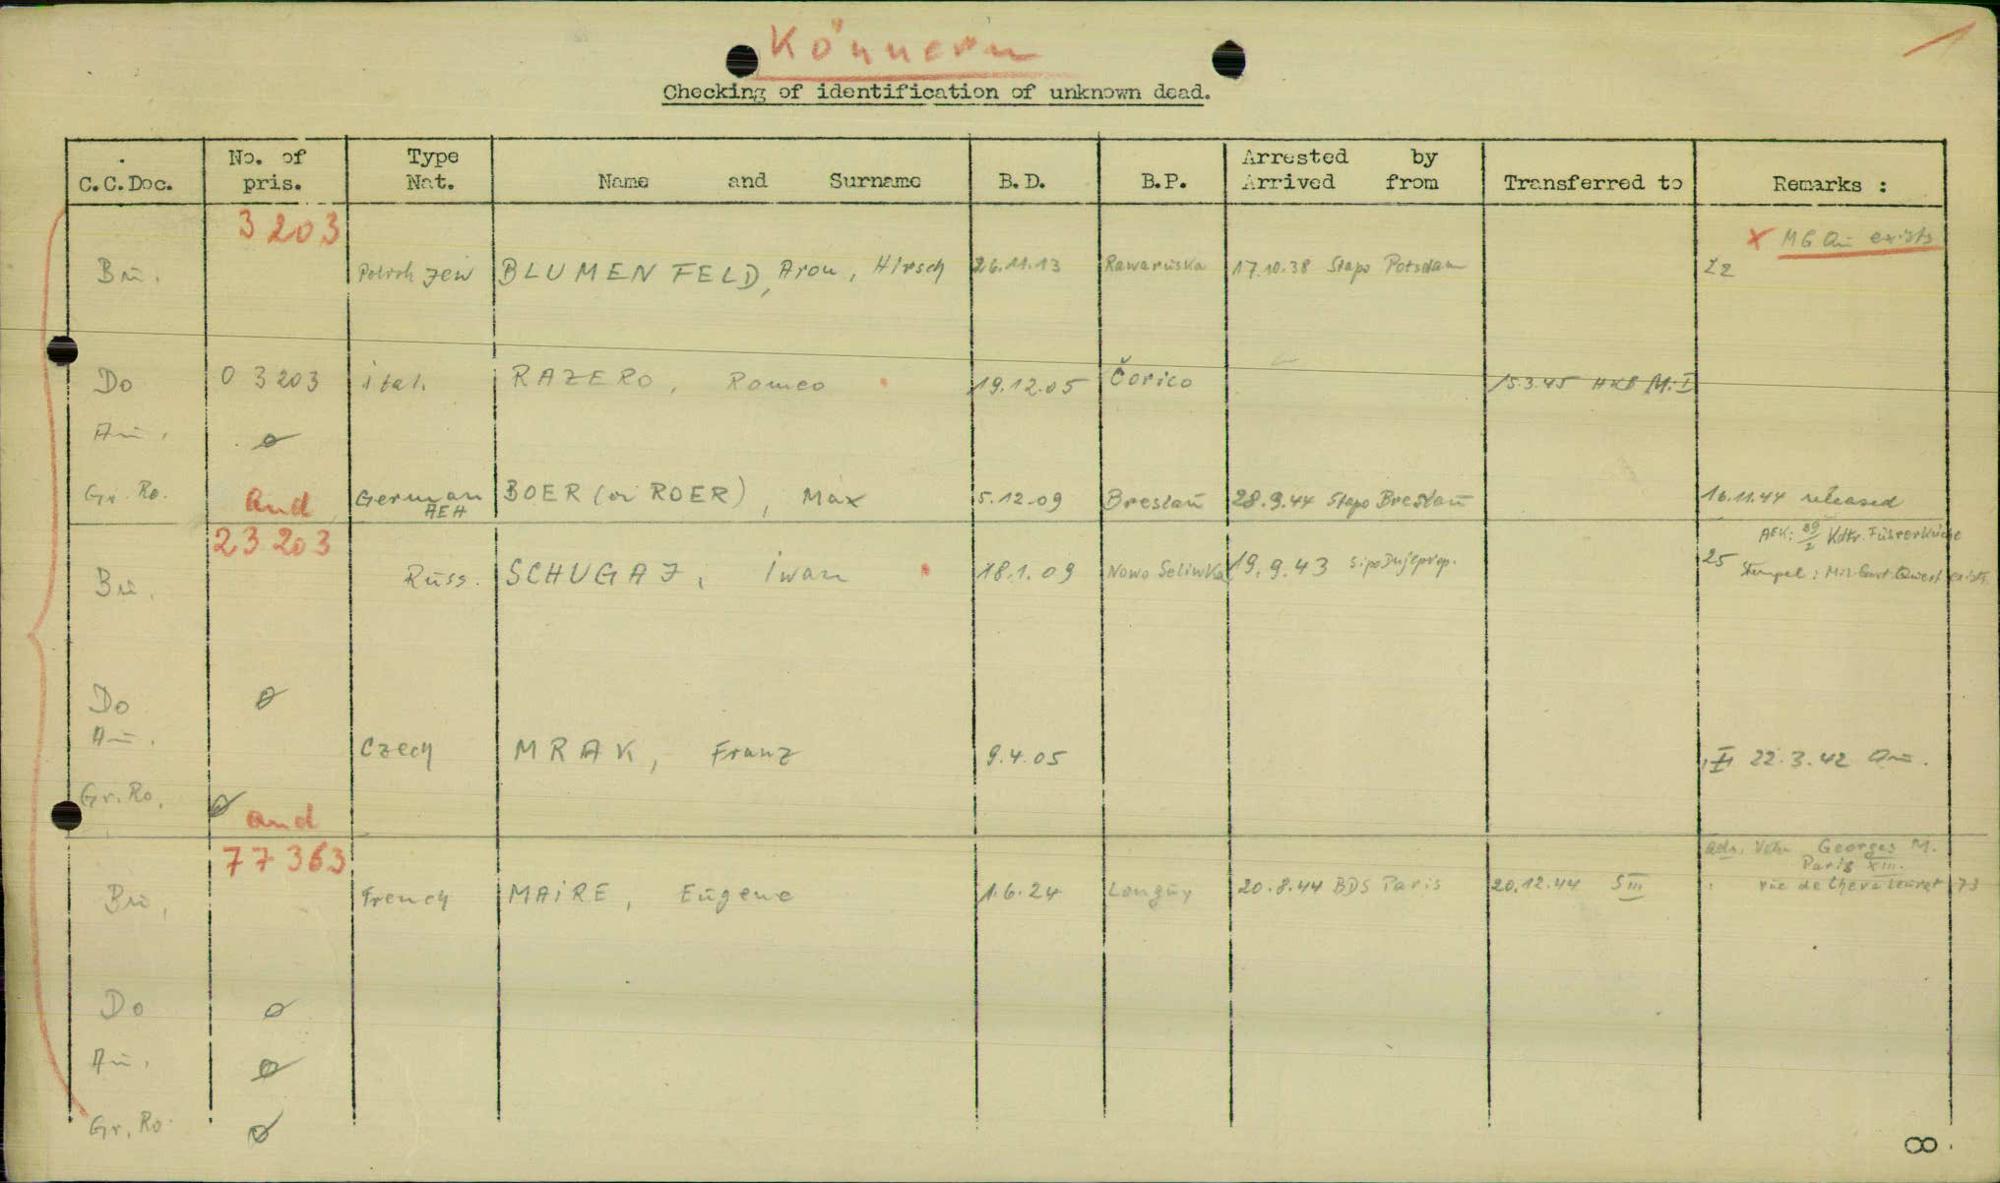 Könnern
1
Checking of identification of unknown dead.
C.C.Doc. No. of pris. Type Nat. Name and Surname B.D. B.P. Arrested by Arrived from Transferred to Remarks :
3203
X MG Au exists
Bu. Polish Jew BLUMENFELD, Aron, Hirsch 26.11.13 Rawaruska 17.10.38 Stapo Potsdam
Do 03203 ital. RAZERO, Romeo 19.12.05 Čorico 15.3.45 HKB M.I
Au. ø
Gr. Ro. German AEH BOER (or ROER), Max 5.12.09 Breslau 28.9.44 Stapo Breslau 16.11.44 released
and
23203
Kdtr. Führerküche
Bu. Russ. SCHUGAJ, Iwan 18.1.09 Nowo Seliwka 19.9.43 25 Stempel:
Do ø
Au. Czech MRAK, Franz 9.4.05 22.3.42 Au.
Gr. Ro. ø
and
77363
Georges M.
Paris XIII.
Bu. French MAIRE, Eugene 1.6.24 Longuy 20.8.44 BDS Paris 20.12.44 S III rue de 73
Do ø
Au. ø
Gr. Ro. ø
8